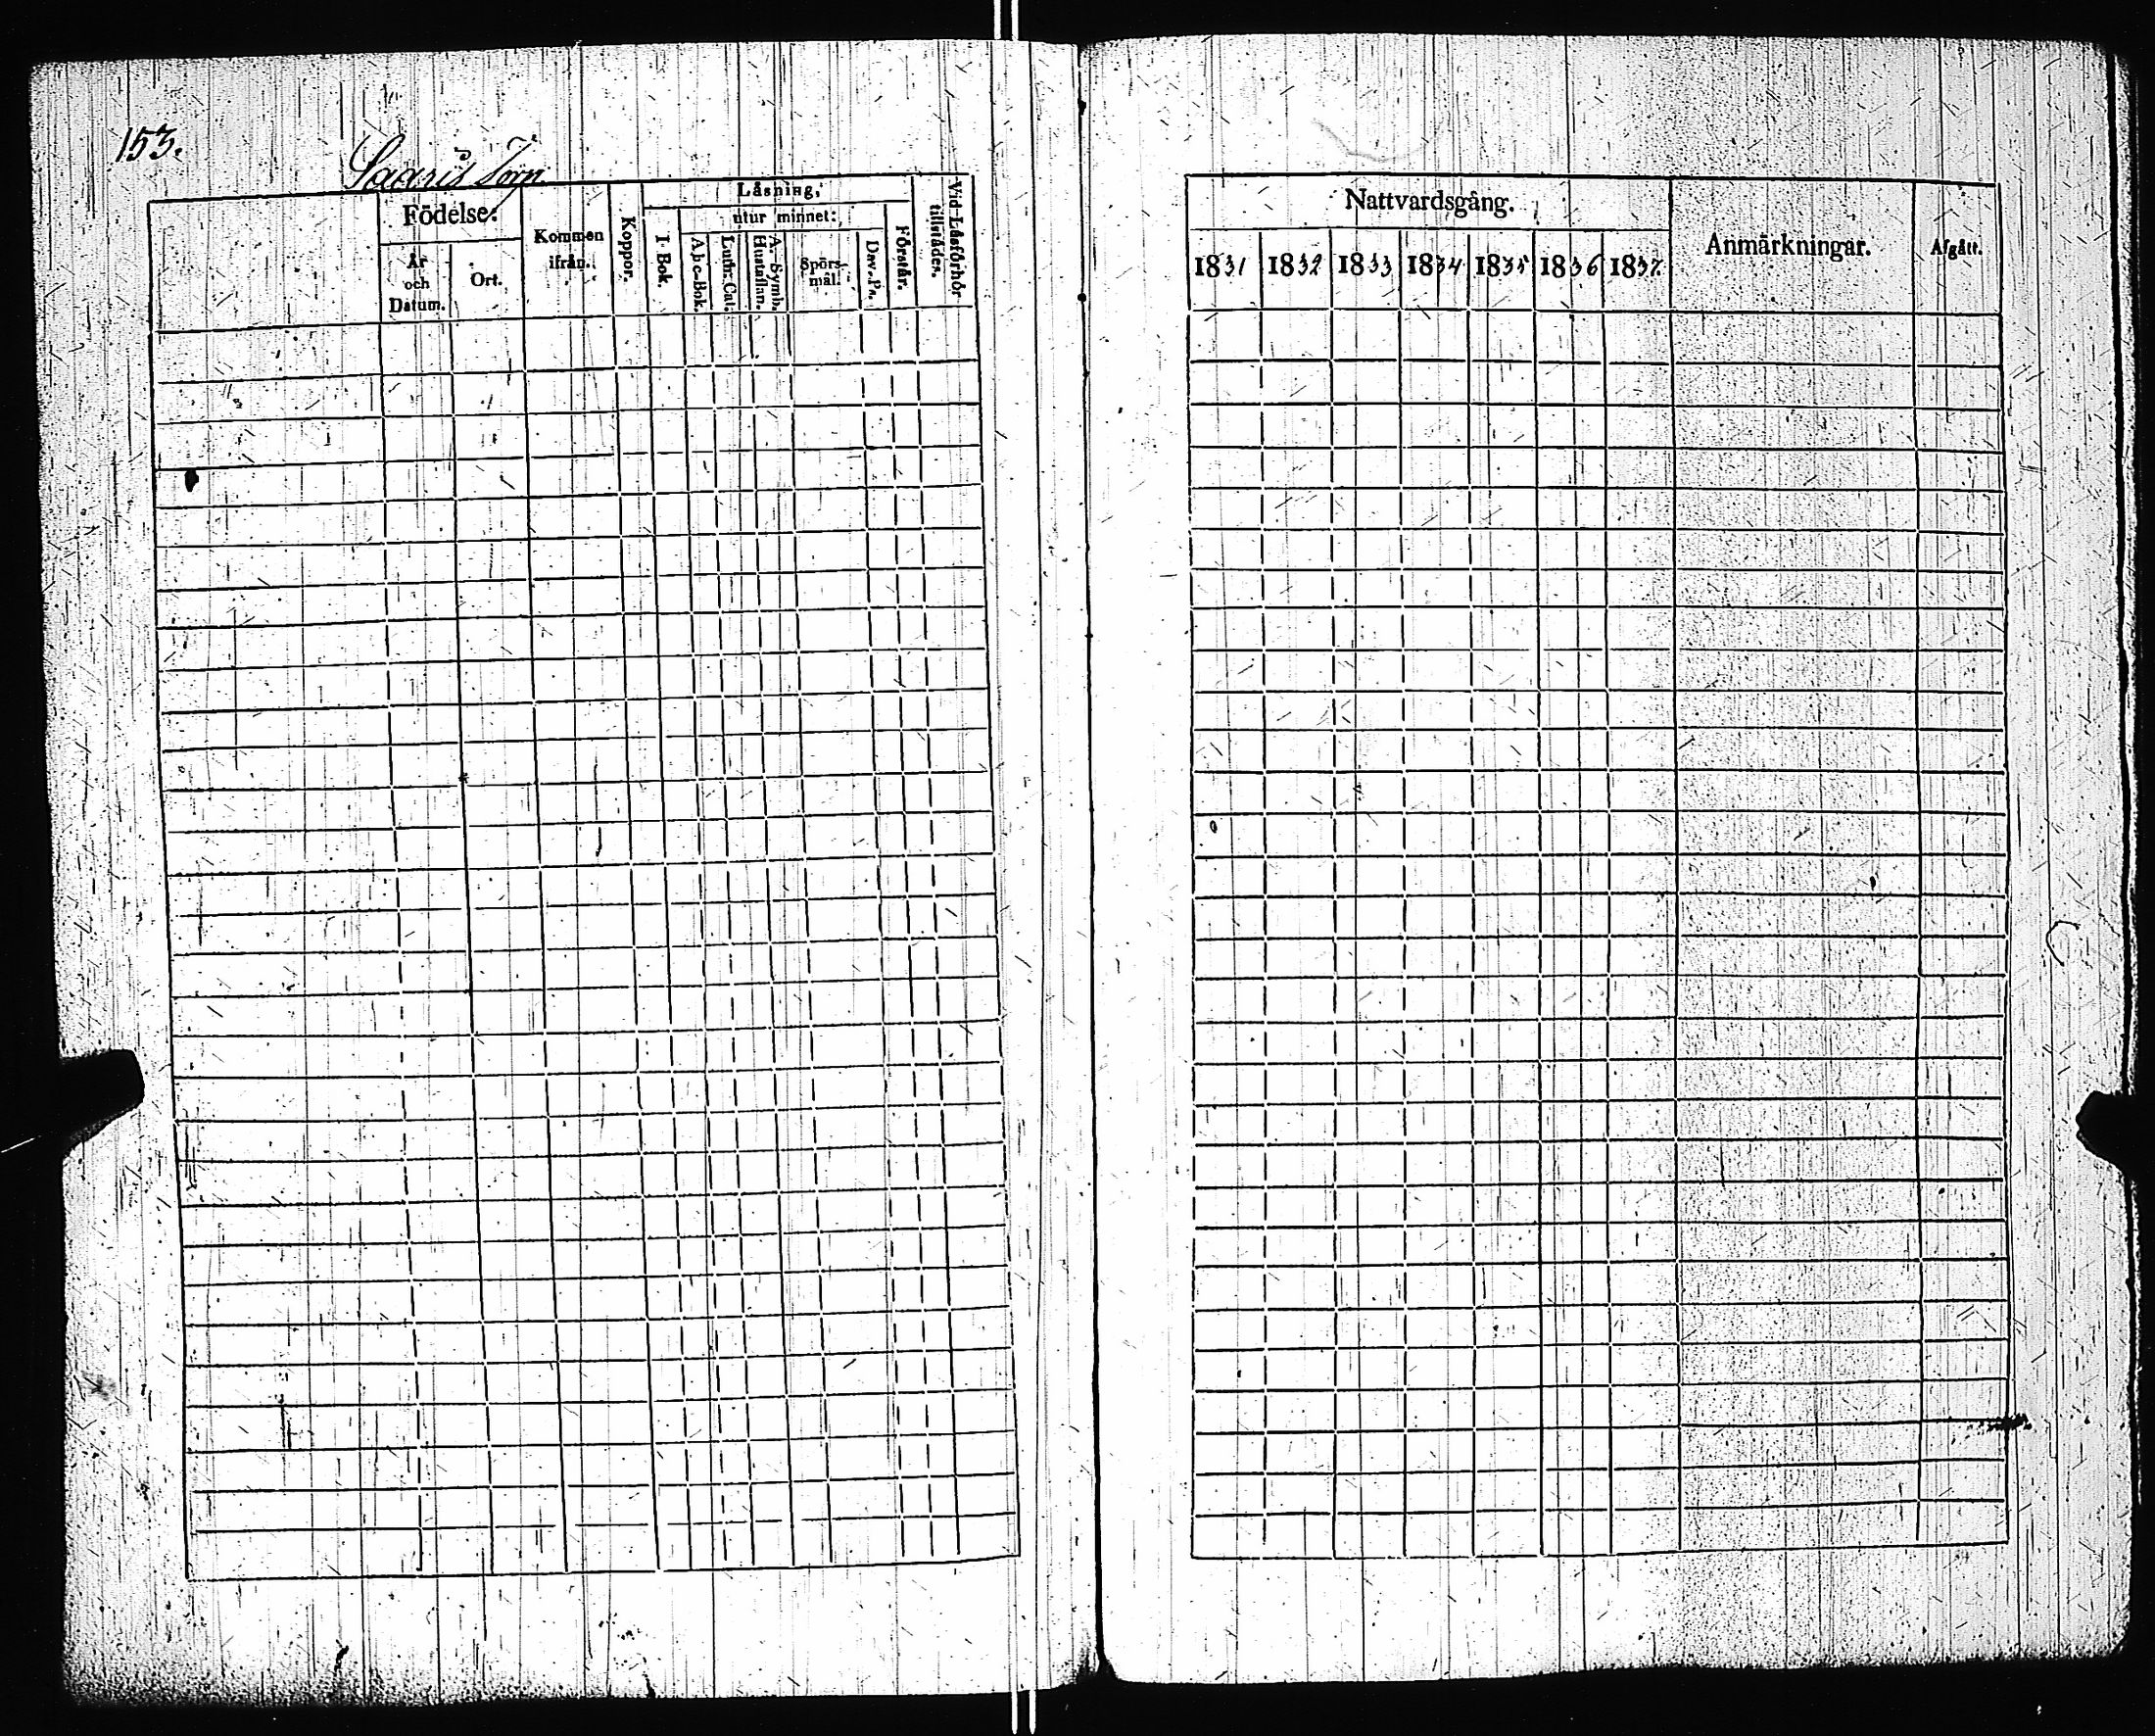 153.
Saaris Torp
Födelse:
År
och
Datum.
Ort.
Kommen
ifrån.
Koppor.
Läsning,
utur minnet:
I Bok.
A b c-Bok.
Luth. Cat.
A. Symb.
Hustaflan.
Spörs-
mål.
Dav. Ps.
Förstår.
Vid Läsförhör
tillstädes.
Nattvardsgång.
1831 1832 1833 1834 1835 1836 1837.
Anmärkningar.
Afgått.